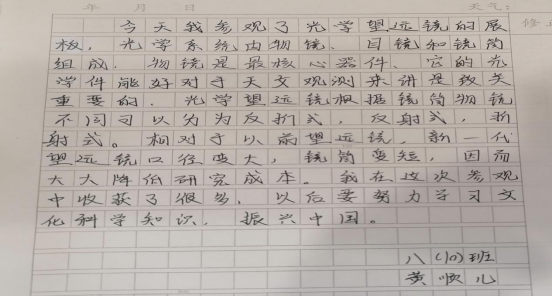 年 月 日 天气:
今天我参观了光学望远镜的展
板，光学系统由物镜、目镜和镜筒
组成，物镜是最核心器件、它的光
学件能好对于天文观测来讲是致关
重要的、光学望远镜根据镜筒物镜
不同可以分为为反折式，反射式，折
射式。相对于以前望远镜，新一代
望远镜口径变大，镜筒变短，因而
大大降低研究成本。我在这次参观
中收获了很多，以后要努力学习文
化科学知识，振兴中国。
八(10)班
黄顺儿